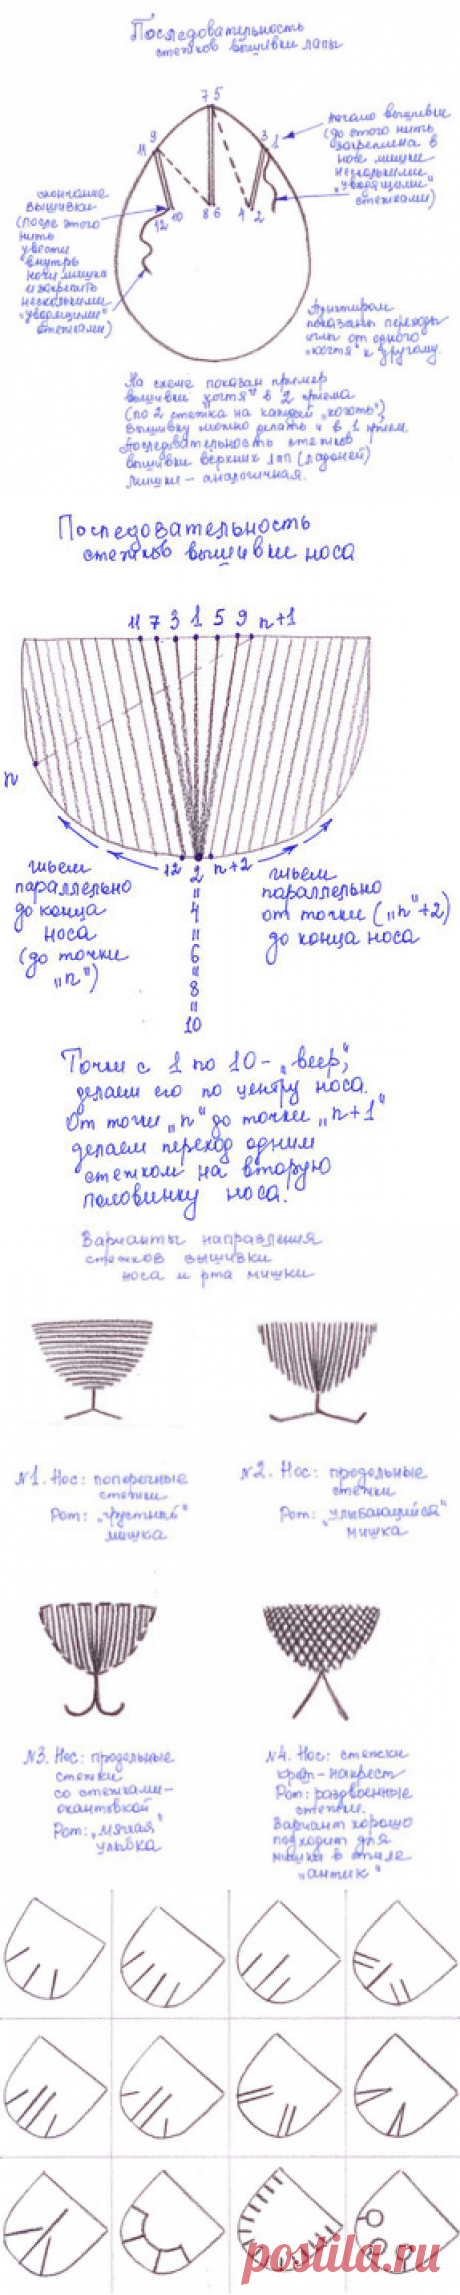 Последовательность
стежков вышивки лапы
7 5
9
11
3
1
10
12
8 6
4 2
начало вышивки
(до этого нить
закреплена в
ноге мишки
несколькими
„уводящими“
стежками)
окончание
вышивки
(после этого
нить
увести
внутрь
ноги мишки
и закрепить
несколькими
„уводящими“
стежками)
Пунктиром
показаны переходы
иглы от одного
„когтя“ к другому.
На схеме показан пример
вышивки „когтя“ в 2 приема
(по 2 стежка на каждый „коготь“)
Вышивку можно делать и в 1 прием
Последовательность стежков
вышивки верхних лап (ладоней)
мишки - аналогичная.
Последовательность
стежков вышивки носа
11 7 3 1 5 9 n+1
n
12 2 n+2
"
4
"
6
"
8
"
10
шьем
параллельно
до конца
носа
(до точки
„n“)
шьем
параллельно
от точки („n“+2)
до конца носа
Точки с 1 по 10 - „веер“,
делаем его по центру носа.
От точки „n“ до точки „n+1“
делаем переход одним
стежком на вторую
половинку носа.
Варианты направления
стежков вышивки
носа и рта мишки
N1. Нос: поперечные
стежки
Рот: „грустный“
мишка
N2. Нос: продольные
стежки
Рот: „улыбающийся“
мишка
N3. Нос: продольные
стежки
со стежками-
окантовкой
Рот: „мягкая“
улыбка
N4. Нос: стежки
крест-накрест
Рот: раздвоенные
стежки.
Вариант хорошо
подходит для
мишки в стиле
„антик“
postila.ru